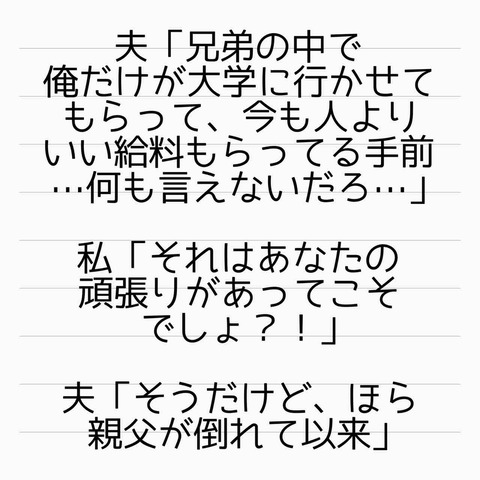 夫「兄弟の中で
俺だけが大学に行かせて
もらって、今も人より
いい給料もらってる手前
…何も言えないだろ…」
私「それはあなたの
頑張りがあってこそ
でしょ？！」
夫「そうだけど、ほら
親父が倒れて以来」